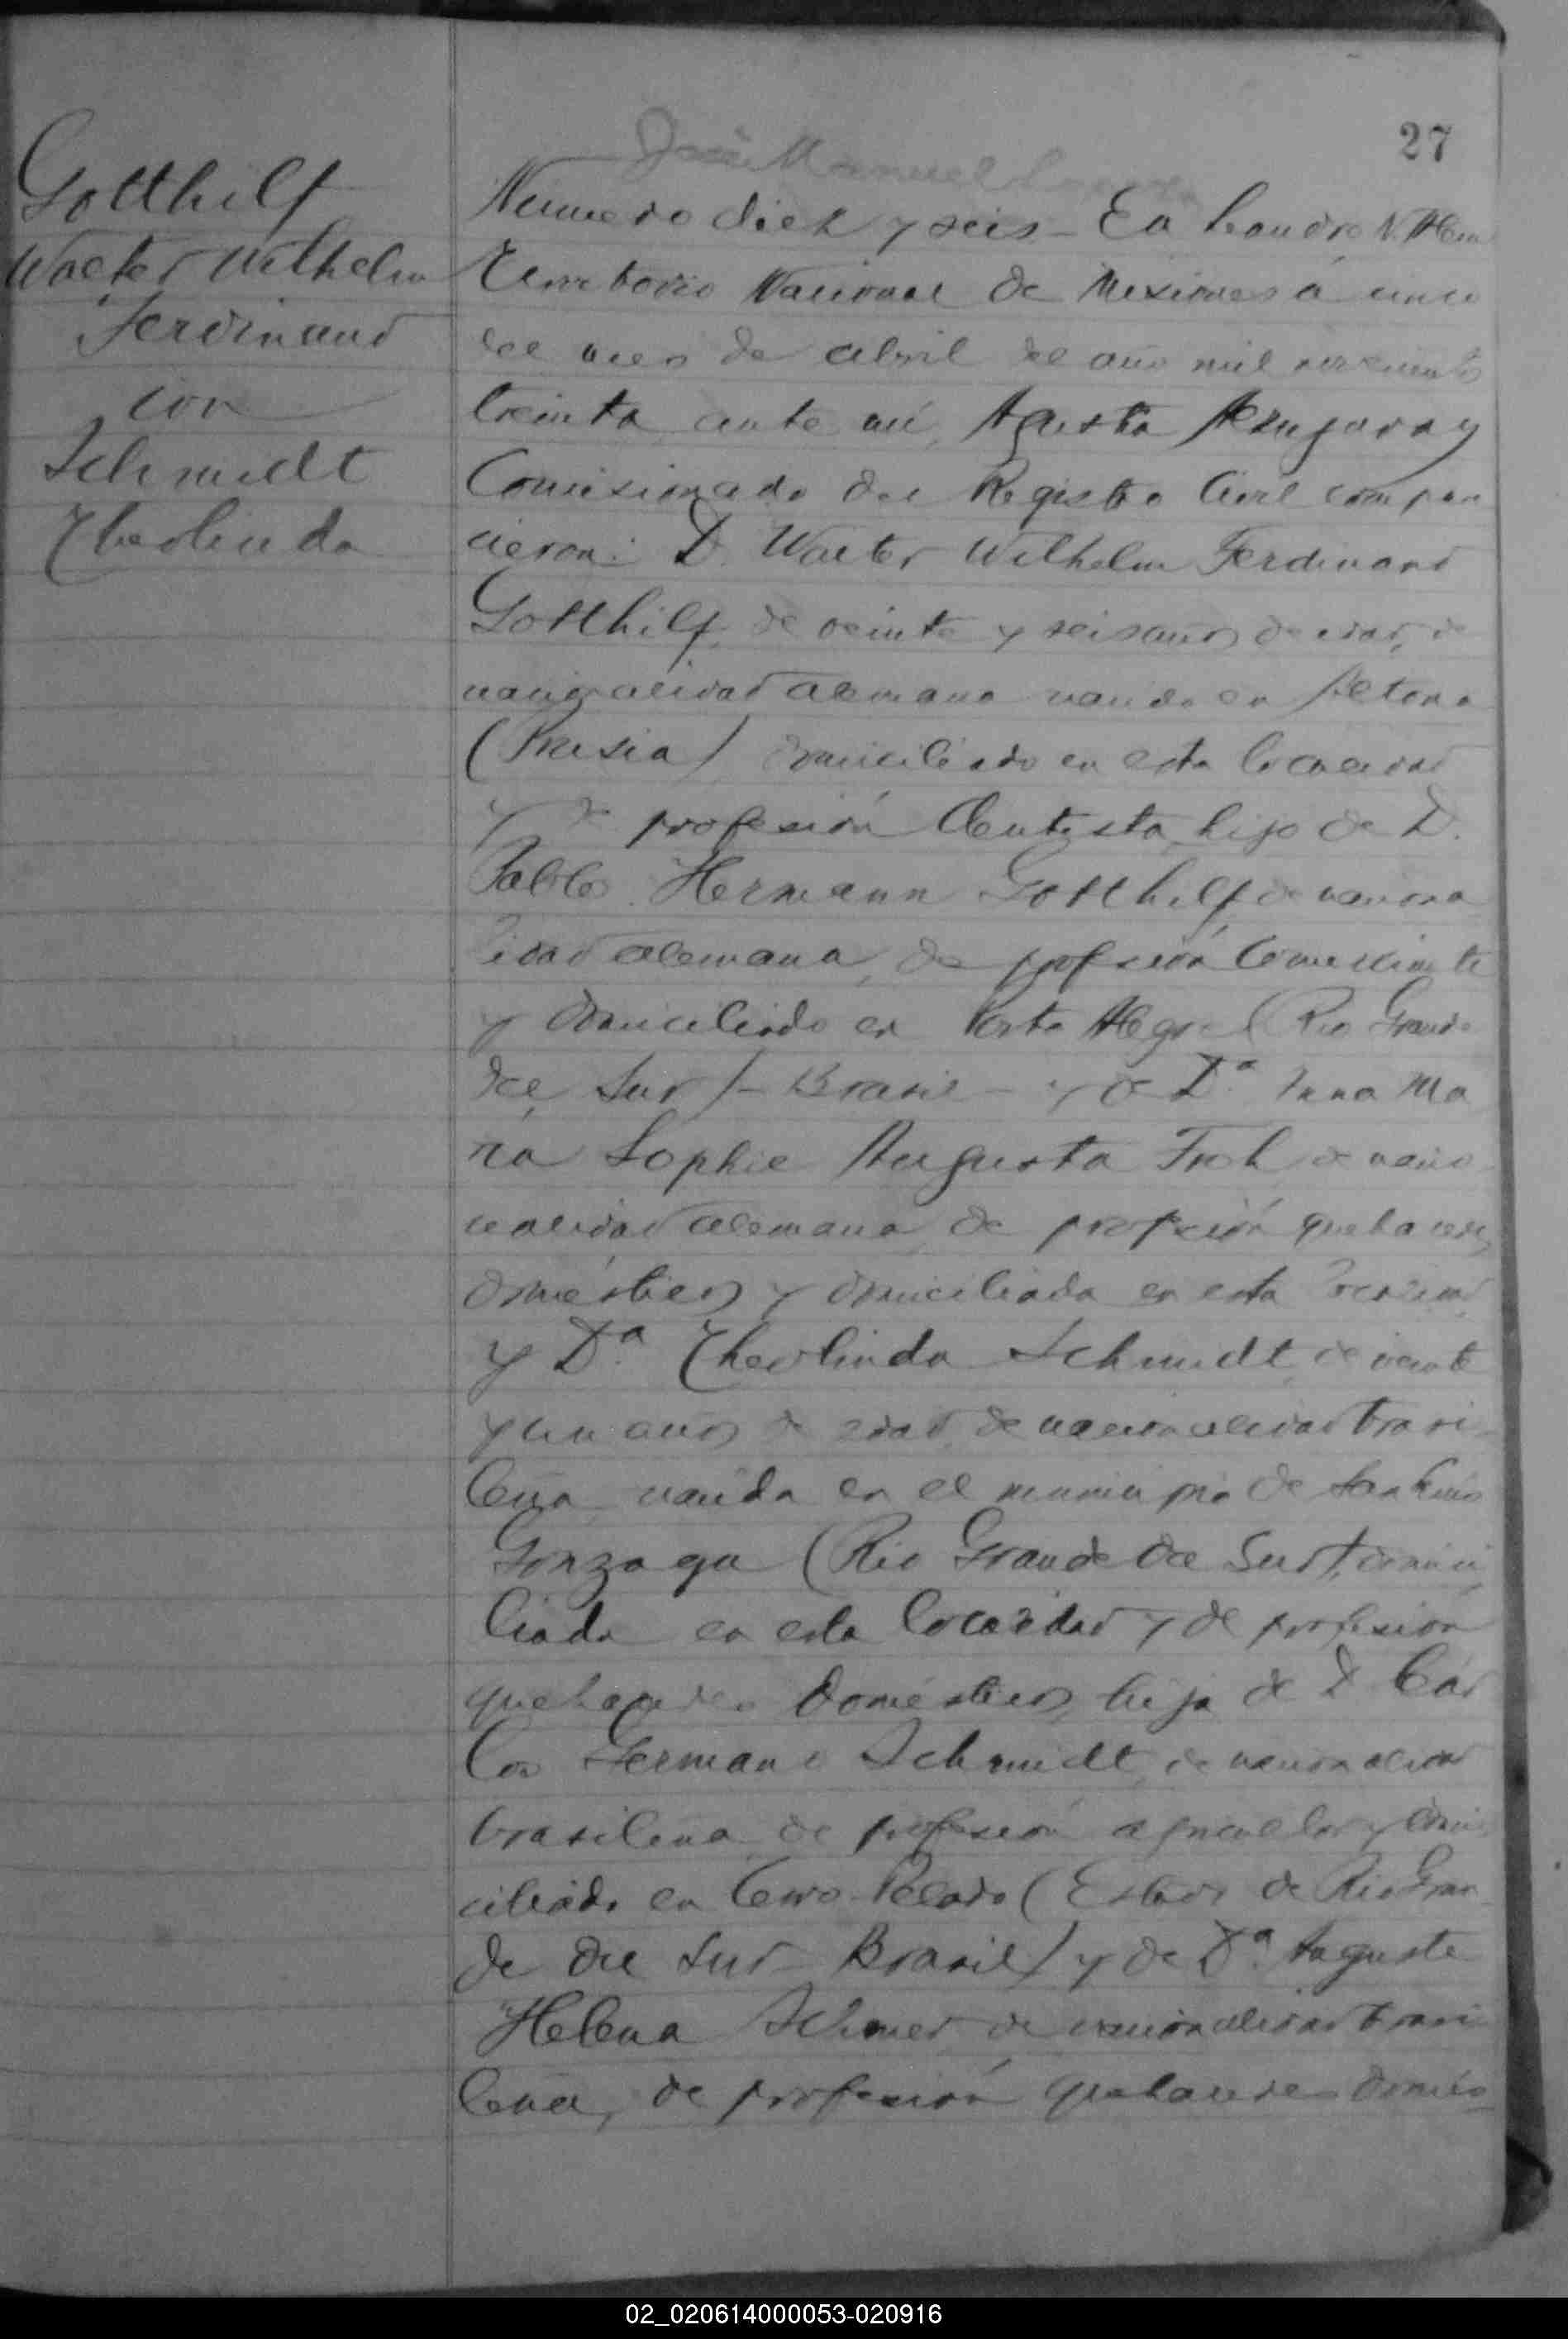 27
José Manuel
Gotthilf
Walter Wilhelm
Ferdinand
con
Schmidt
Therlinda
Número diez y seis - En Leandro N. Alem
Territorio Nacional de Misiones á cinco
del mes de abril del año mil novecientos
treinta, ante mí,
Comisionado del Registro Civil compare
cieron: D. Walter Wilhelm Ferdinand
Gotthilf, de veinte y seis años de edad, de
nacionalidad alemana nacido en Altona
(Prusia) domiciliado en esta localidad
y de profesión dentista, hijo de D.
Pablo Hermann Gotthilf, de naciona
lidad alemana, de profesión comerciante
y domiciliado en Porto Alegre (Rio Grande
del Sur) - Brasil - y de Dª Anna Ma
ria Sophie Augusta Froh, de nacio
nalidad alemana, de profesión quehaceres
domésticos y domiciliada en esta localidad
y Dª Therlinda Schmidt, de veinte
y un años de edad, de nacionalidad brasi
leña, nacida en el municipio de San Luis
Gonzaga (Rio Grande del Sur), domici
liada en esta localidad y de profesión
quehaceres domésticos, hija de D. Cár
los Germano Schmidt, de nacionalidad
brasileña, de profesión agricultor y domi
ciliado en Cerro Pelado (Estado de Rio Gran
de del Sur - Brasil) y de Dª Auguste
Helena de nacionalidad brasi
leña, de profesión quehaceres domés
02_020614000053-020916